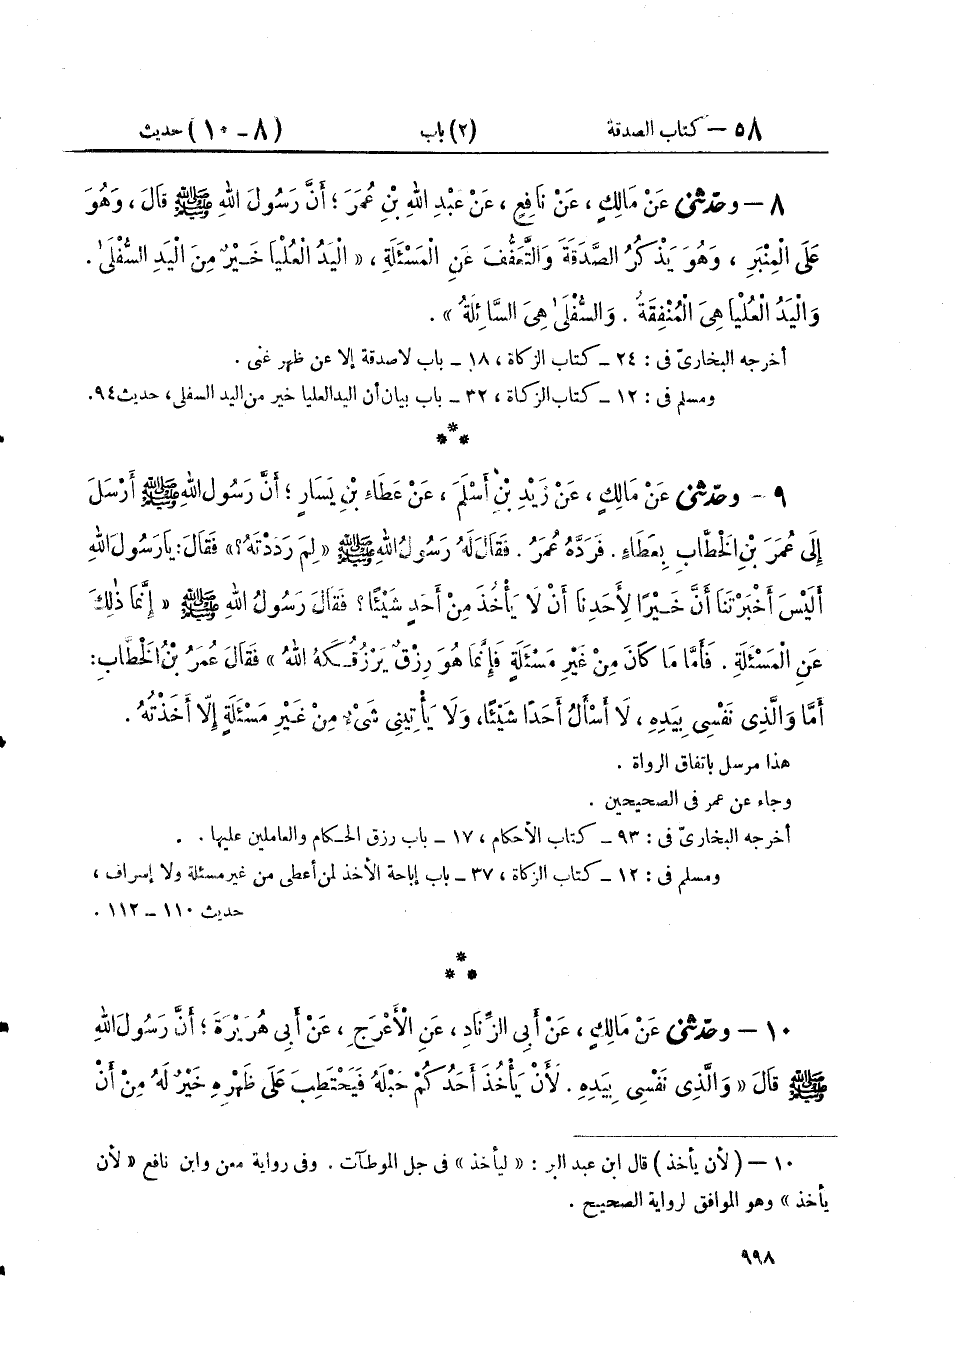 ٥٨ – كتاب الصدقة (٢) باب (٨ – ١٠) حديث
٨ – وحدّثنى عَنْ مَالِكٍ ، عَنْ نَافِعٍ ، عَنْ عَبْدِ اللهِ بْنِ عُمَرَ ؛ أَنَّ رَسُولَ اللهِ ﷺ قَالَ ، وَهُوَ
عَلَى الْمِنْبَرِ ، وَهُوَ يَذْكُرُ الصَّدَقَةَ وَالتَّعَفُّفَ عَنِ الْمَسْئَلَةِ ، « الْيَدُ الْعُلْيَا خَيْرٌ مِنَ الْيَدِ السُّفْلَى .
وَالْيَدُ الْعُلْيَا هِىَ الْمُنْفِقَةُ . وَالسُّفْلَى هِىَ السَّائِلَةُ » .
أخرجه البخارىّ فى : ٢٤ – كتاب الزكاة ، ١٨ – باب لاصدقة إلا عن ظهر غنى .
ومسلم فى : ١٢ – كتاب الزكاة ، ٣٢ – باب بيان أن اليد العليا خير من اليد السفلى ، حديث ٩٤.
***
٩ – وحدّثنى عَنْ مَالِكٍ ، عَنْ زَيْدِ بْنِ أَسْلَمَ ، عَنْ عَطَاءِ بْنِ يَسَارٍ ؛ أَنَّ رَسُولَ اللهِ ﷺ أَرْسَلَ
إِلَى عُمَرَ بْنِ الْخَطَّابِ بِعَطَاءٍ . فَرَدَّهُ عُمَرُ . فَقَالَ لَهُ رَسُولُ اللهِ ﷺ « لِمَ رَدَدْتَهُ؟ » فَقَالَ: يَارَسُولَ اللهِ
أَلَيْسَ أَخْبَرْتَنَا أَنَّ خَيْرًا لِأَحَدِنَا أَنْ لَا يَأْخُذَ مِنْ أَحَدٍ شَيْئًا؟ فَقَالَ رَسُولُ اللهِ ﷺ « إِنَّمَا ذٰلِكَ
عَنِ الْمَسْئَلَةِ . فَأَمَّا مَا كَانَ مِنْ غَيْرِ مَسْئَلَةٍ فَإِنَّمَا هُوَ رِزْقٌ يَرْزُقُكَهُ اللهُ » فَقَالَ عُمَرُ بْنُ الْخَطَّابِ:
أَمَّا وَالَّذِى نَفْسِى بِيَدِهِ ، لَا أَسْأَلُ أَحَدًا شَيْئًا، وَلَا يَأْتِينِى شَىْءٌ مِنْ غَيْرِ مَسْئَلَةٍ إِلَّا أَخَذْتُهُ .
هذا مرسل باتفاق الرواة .
وجاء عن عمر فى الصحيحين .
أخرجه البخارىّ فى : ٩٣ – كتاب الأحكام ، ١٧ – باب رزق الحكام والعاملين عليها .
ومسلم فى : ١٢ – كتاب الزكاة ، ٣٧ – باب إباحة الأخذ لمن أعطى من غير مسئلة ولا إسراف ،
حديث ١١٠ – ١١٢ .
***
١٠ – وحدّثنى عَنْ مَالِكٍ ، عَنْ أَبِى الزِّنَادِ ، عَنِ الْأَعْرَجِ ، عَنْ أَبِى هُرَيْرَةَ ؛ أَنَّ رَسُولَ اللهِ
ﷺ قَالَ « وَالَّذِى نَفْسِى بِيَدِهِ . لَأَنْ يَأْخُذَ أَحَدُكُمْ حَبْلَهُ فَيَحْتَطِبَ عَلَى ظَهْرِهِ خَيْرٌ لَهُ مِنْ أَنْ
١٠ – ( لأن يأخذ ) قال ابن عبد البر : « ليأخذ » فى جل الموطآت . وفى رواية معن وابن نافع « لأن
يأخذ » وهو الموافق لرواية الصحيح .
٩٩٨